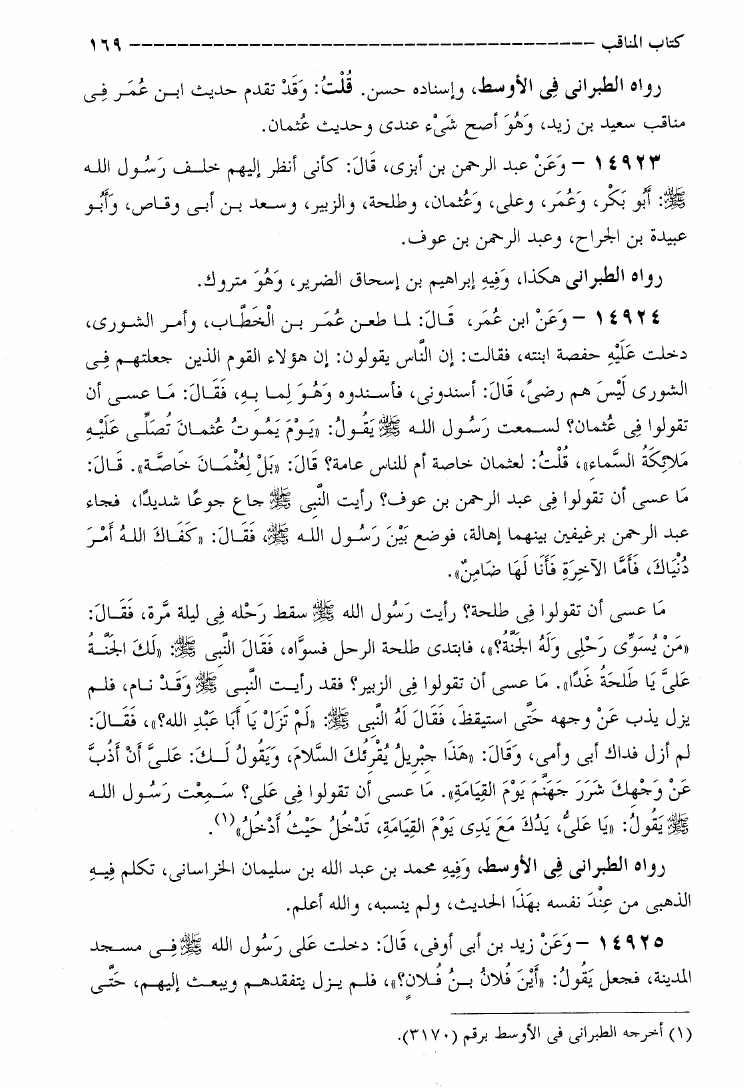 كتاب المناقب ------------------------------------------ ١٦٩
رواه الطبرانى فِى الأوسط، وإسناده حسن. قُلْتُ: وَقَدْ تقدم حديث ابن عُمَر فِى
مناقب سعيد بن زيد، وَهُوَ أصح شَىْء عندى وحديث عُثمان.
١٤٩٢٣ – وَعَنْ عبد الرحمن بن أبزى، قَالَ: كأنى أنظر إليهم خلف رَسُول الله
ﷺ: أَبُو بَكْر، وَعُمَر، وعلى، وَعُثمان، وطلحة، والزبير، وسعد بن أبى وقاص، وَأَبُو
عبيدة بن الجراح، وعبد الرحمن بن عوف.
رواه الطبرانى هكذا، وَفِيهِ إبراهيم بن إسحاق الضرير، وَهُوَ متروك.
١٤٩٢٤ – وَعَنْ ابن عُمَر، قَالَ: لما طعن عُمَر بن الْخَطَّاب، وأمر الشورى،
دخلت عَلَيْهِ حفصة ابنته، فقالت: إن النَّاس يقولون: إن هؤلاء القوم الذين جعلتهم فِى
الشورى لَيْسَ هم رضىً، قَالَ: أسندونى، فأسندوه وَهُوَ لِما بِهِ، فَقَالَ: مَا عسى أن
تقولوا فِى عُثمان؟ لسمعت رَسُول الله ﷺ يَقُولُ: «يَوْمَ يَمُوتُ عُثمان تُصَلِّى عَلَيْهِ
مَلائِكَةُ السَّماءِ»، قُلْتُ: لعثمان خاصة أم للناس عامة؟ قَالَ: «بَلْ لِعُثْمَانَ خَاصَّة». قَالَ:
مَا عسى أن تقولوا فِى عبد الرحمن بن عوف؟ رأيت النَّبِى ﷺ جاع جوعًا شديدًا، فجاء
عبد الرحمن برغيفين بينهما إهالة، فوضع بَيْنَ رَسُول الله ﷺ، فَقَالَ: «كَفَاكَ اللهُ أَمْرَ
دُنْيَاكَ، فَأَمَّا الآخِرَةِ فَأَنَا لَهَا ضَامِنٌ».
مَا عسى أن تقولوا فِى طلحة؟ رأيت رَسُول الله ﷺ سقط رَحْله فِى ليلة مَّرة، فَقَالَ:
«مَنْ يُسَوِّى رَحْلِى وَلَهُ الجَنَّةُ؟»، فابتدى طلحة الرحل فسوَّاه، فَقَالَ النَّبِى ﷺ: «لَكَ الجَنَّةُ
عَلَىَّ يَا طَلْحَةُ غَدًا». مَا عسى أن تقولوا فِى الزبير؟ فقد رأيت النَّبِى ﷺ وَقَدْ نام، فلم
يزل يذب عَنْ وجهه حَتَّى استيقظ، فَقَالَ لَهُ النَّبِى ﷺ: «لَمْ تَزَلْ يَا أَبَا عَبْدِ الله؟»، فَقَالَ:
لم أزل فداك أبى وأمى، وَقَالَ: «هَذَا جِبْرِيلُ يُقْرِئُكَ السَّلامَ، وَيَقُولُ لَكَ: عَلَىَّ أَنْ أَذُبَّ
عَنْ وَجْهِكَ شَرَرَ جَهَنَّمَ يَوْمَ القِيَامَةِ». مَا عسى أن تقولوا فِى على؟ سَمِعْت رَسُول الله
ﷺ يَقُولُ: «يَا عَلىُّ، يَدُكَ مَعَ يَدِى يَوْمَ القِيَامَةِ، تَدْخُلُ حَيْثُ أَدْخُلُ»(١).
رواه الطبرانى فِى الأوسط، وَفِيهِ محمد بن عبد الله بن سليمان الخراسانى، تكلم فِيهِ
الذهبى من عِنْدَ نفسه بِهَذَا الحديث، ولم ينسبه، والله أعلم.
١٤٩٢٥ – وَعَنْ زيد بن أبى أوفى، قَالَ: دخلت عَلى رَسُول الله ﷺ فِى مسجد
المدينة، فجعل يَقُولُ: «أَيْنَ فُلانُ بنُ فُلانٍ؟»، فلم يزل يتفقدهم ويبعث إليهم، حَتَّى
(١) أخرجه الطبرانى فى الأوسط برقم (٣١٧٠).